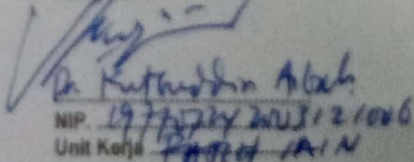 Dr. Kuthuddin Aibak
NIP. 19770724 200312 1006
Unit Kerja IAIN